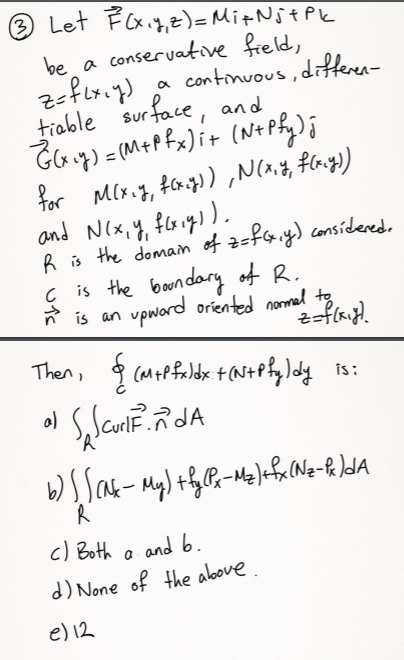 ③ Let F⃗(x,y,z)=Mi+Nj+Pk
be a conservative field,
z=f(x,y) a continuous, differen-
tiable surface, and
G⃗(x,y)=(M+Pfx)i+(N+Pfy)j
for M(x,y,f(x,y)), N(x,y,f(x,y))
and N(x,y,f(x,y)).
R is the domain of z=f(x,y) considered.
C is the boundary of R.
n⃗ is an upward oriented normal to
z=f(x,y).
Then, ∮_C (M+Pfx)dx+(N+Pfy)dy is:
a) ∫∫_R curl F⃗·n⃗ dA
b) ∫∫_R (Nx-My)+fy(Px-Mz)+fx(Nz-Px)dA
c) Both a and b.
d) None of the above.
e) 12